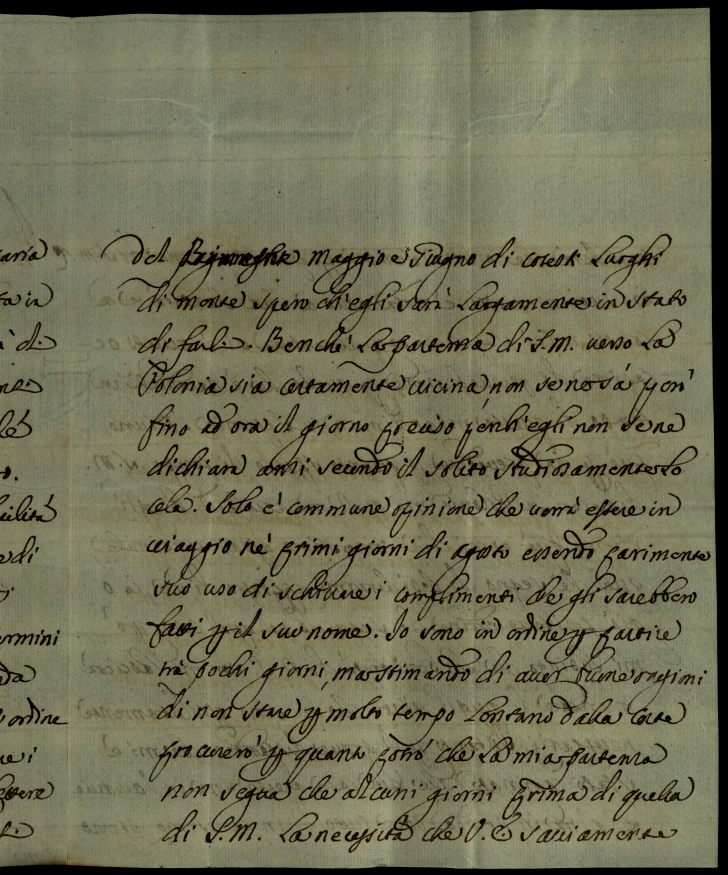 aria
ta in
à di
lé
to.
cilità
e di
ermini
da
ordine
ue i
ettere
del maggio e Giugno di cotesti Luoghi
di monte spero ch'egli sarà Largamente in stato
di farli. Benchè La partenza di S.M. verso La
Polonia sia certamente vicina, non se ne sá però
fino ad'ora il giorno preciso perch'egli non se ne
dichiara anzi secondo il solito studiosamente Lo
cela. Solo e' commune opinione che vorrà essere in
viaggio ne' primi giorni di agosto essendo parimente
suo uso di schivare i complimenti che gli sarebbero
fatti p il suo nome. Io sono in ordine p partire
trà pochi giorni, ma stimando di aver buone ragioni
di non stare p molto tempo Lontano dalla Corte
procurerò p quanto potrò che La mia partenza
non segua che alcuni giorni prima di quella
di S.M. La necessità che V.E. saviamente